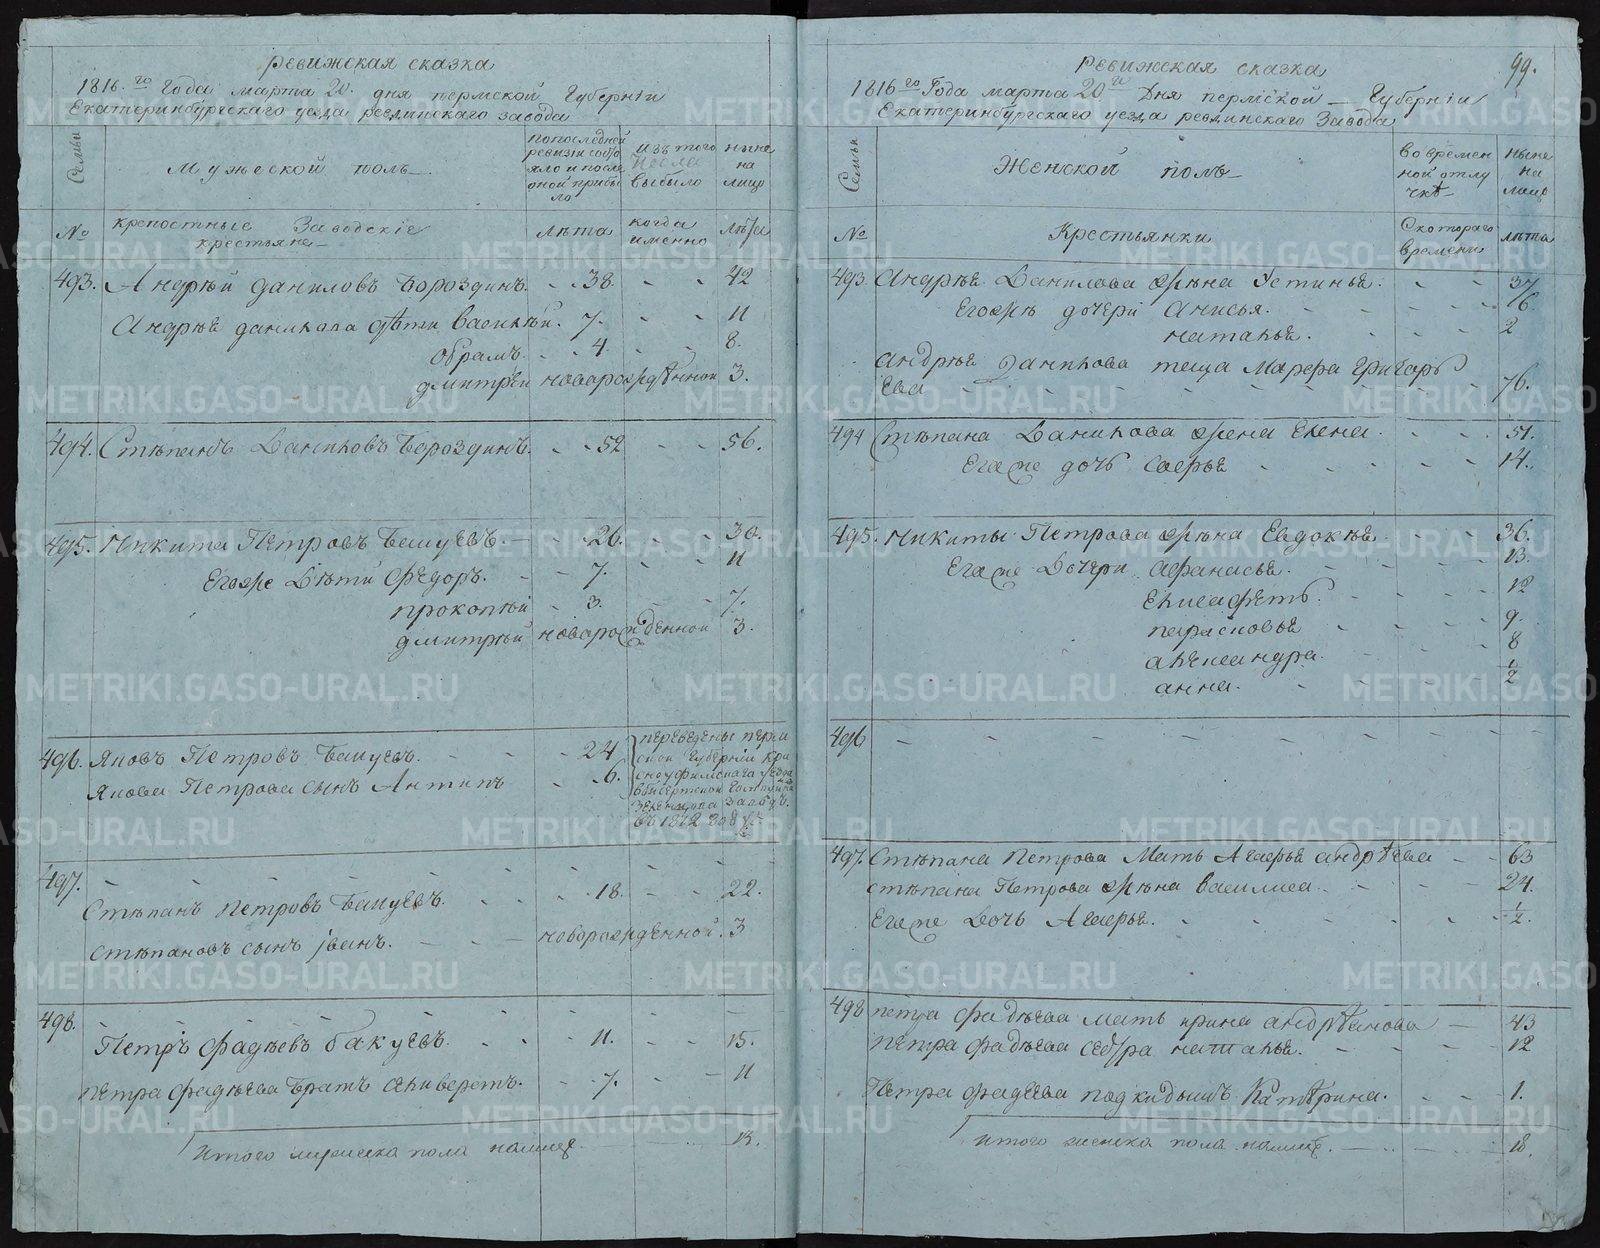 Ревижская сказка
1816.го Года марта 20. дня пермской Губернiи
Екатеринбургскаго уезда ревдинскаго завода
Семьи
Мужеской полъ
попоследней ревизiи состояло и после оной прибыло
изъ того числа выбыло
ныне на лицо
№
крепостные Заводскiе крестьяне
лѣта
когда именно
лѣта
493. Андрѣй даниловъ Бороздинъ. - - 38. - - 42
Андрѣя данилова дѣти василѣй. 7. - - 11
обрамъ. - - 4. - - 8.
дмитрѣй новорожденной 3.
494. Стѣпанъ Даниловъ Бороздинъ. - - 52 - - 56.
495. Никита Петровъ Бакуевъ. - - 26. - - 30.
Егоже Дѣти Федоръ. - - 7. - - 11
прокопѣй - 3. - - 7.
дмитрѣй новорожденной 3.
496. Яковъ Петровъ Бакуевъ. - - - 24
Якова Петрова сынъ Антипъ - 6.
переведены перм
ской Губернiи Кра
сноуфимскаго уезда
въ 1812 году
497. - - - - - - -
Стѣпанъ Петровъ Бакуевъ. - - - 18. - - 22.
Стѣпановъ сынъ iванъ. - - - новорожденной. 3
498. - - - - - - -
Петръ фадѣевъ бакуевъ. - - - 11. - - 15.
петра фадѣева Братъ селиверстъ. - - 7. - - 11
Итого мужеска пола налице. - - - 13.
99.
Ревижская сказка
1816го Года марта 20го Дня пермской Губернiи
Екатеринбургскаго уезда ревдинскаго Завода
Семьи
Женской полъ
во временной отлучкѣ
ныне на лицо
№
Крестьянки
Скотораго времени
лѣта
493 Андрѣя Данилова жена Устинья. - - 37
Егожъ дочери Анисья. - - - - 16.
наталья. - - - 2
андрѣя Данилова теща Марфа григорь
ева - - - - - 76.
494 Стѣпана Данилова жена Елена - - - 51.
Егоже дочь софья - - - - 14.
495. Никиты Петрова жена Евдокѣя. - - - 36.
Егоже Дочери афанасья. - - - - 13.
Елисафетъ. - - - 12
парасковья - - - - 9.
александра. - - - 8
анна. - - - - 1/2
496 - - - - - - -
497. Стѣпана Петрова Мать Агафья андрѣева - - 63
стѣпана Петрова жена василиса. - - - 24.
Егоже Дочь Агафья. - - - - 1/2.
498 петра фадѣева мать ирина андрѣянова - 43
петра фадѣева сестра наталья. - - - 12
Петра фадѣева подкидышъ Катѣрина. - - 1.
Итого женска пола налице. - - - 18.
METRIKI.GASO-URAL.RU